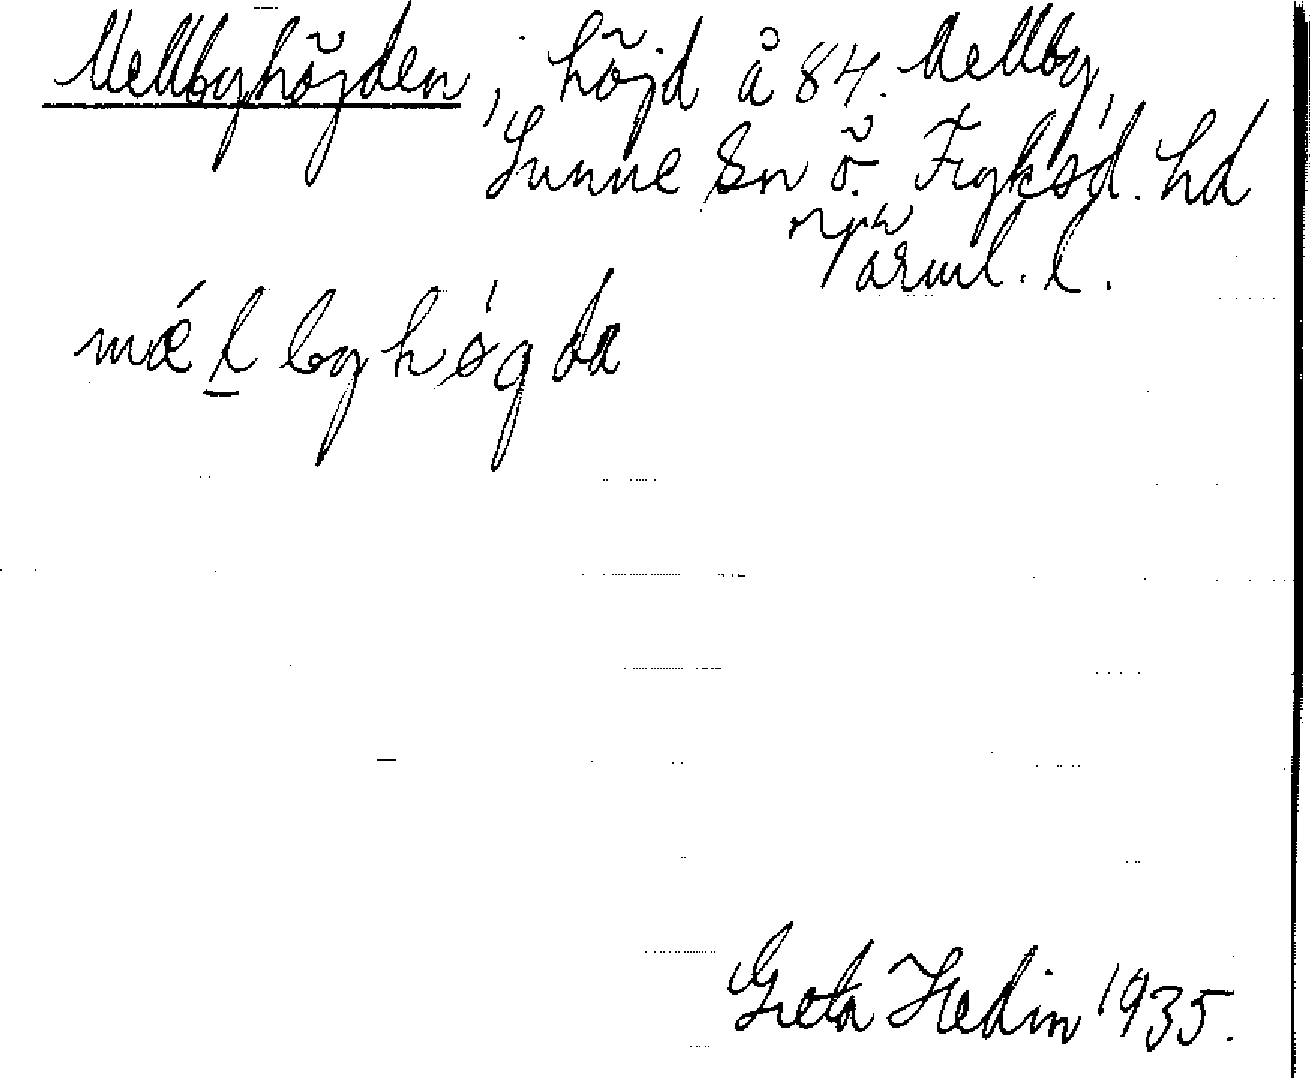 Mellbyhöjden, höjd å 84. Mellby,
Sunne Sn ö. Fryksd. hd
Värml. l.
mǽl byhǿgda
Greta Hedin 1935.